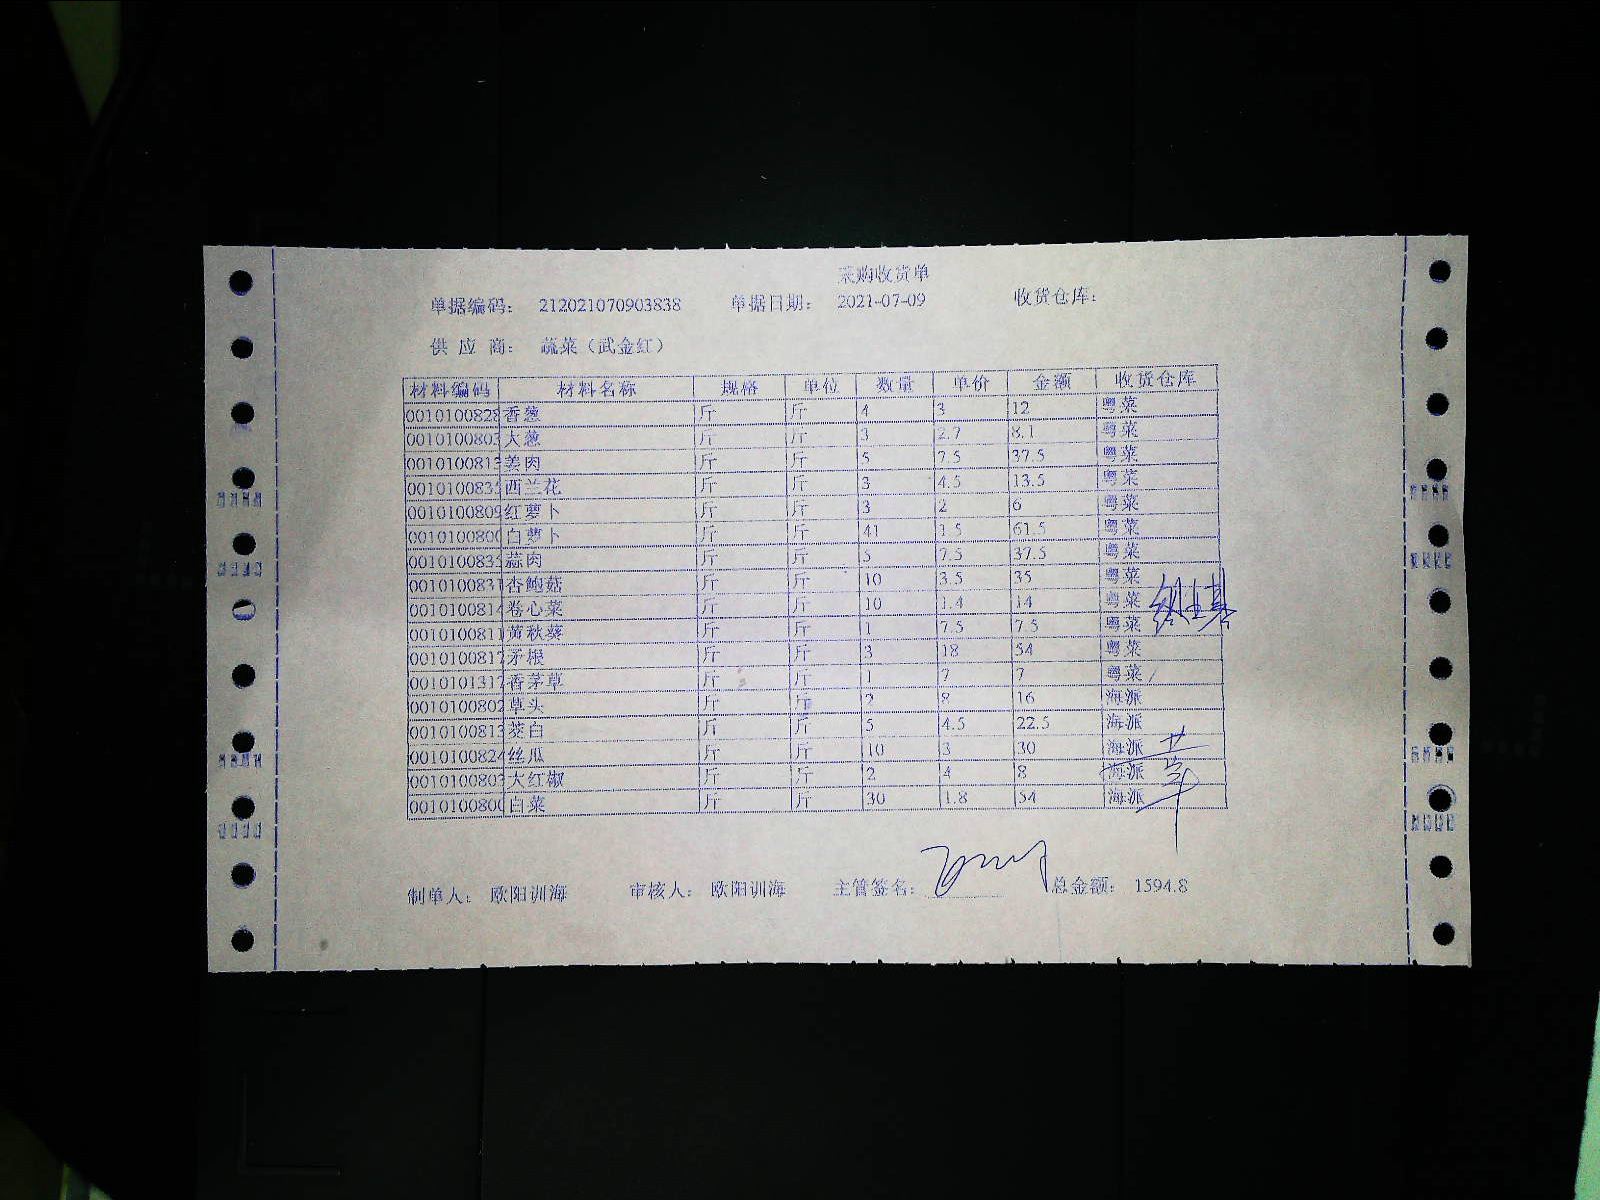 采购收货单
单据编码： 212021070903838 单据日期： 2021-07-09 收货仓库：
供 应 商： 蔬菜（武金红）
材料编码 材料名称 规格 单位 数量 单价 金额 收货仓库
0010100828 香葱 斤 斤 4 3 12 粤菜
0010100803 大葱 斤 斤 3 2.7 8.1 粤菜
0010100813 姜肉 斤 斤 5 7.5 37.5 粤菜
0010100835 西兰花 斤 斤 3 4.5 13.5 粤菜
0010100809 红萝卜 斤 斤 3 2 6 粤菜
0010100800 白萝卜 斤 斤 41 1.5 61.5 粤菜
0010100835 蒜肉 斤 斤 5 7.5 37.5 粤菜
0010100831 杏鲍菇 斤 斤 10 3.5 35 粤菜
0010100814 卷心菜 斤 斤 10 1.4 14 粤菜
0010100811 黄秋葵 斤 斤 1 7.5 7.5 粤菜
0010100817 矛根 斤 斤 3 18 54 粤菜
0010101317 香茅草 斤 斤 1 7 7 粤菜
0010100802 草头 斤 斤 2 8 16 海派
0010100813 茭白 斤 斤 5 4.5 22.5 海派
0010100824 丝瓜 斤 斤 10 3 30 海派
0010100803 大红椒 斤 斤 2 4 8 海派
0010100800 白菜 斤 斤 30 1.8 54 海派
制单人： 欧阳训海 审核人： 欧阳训海 主管签名： 总金额： 1594.8